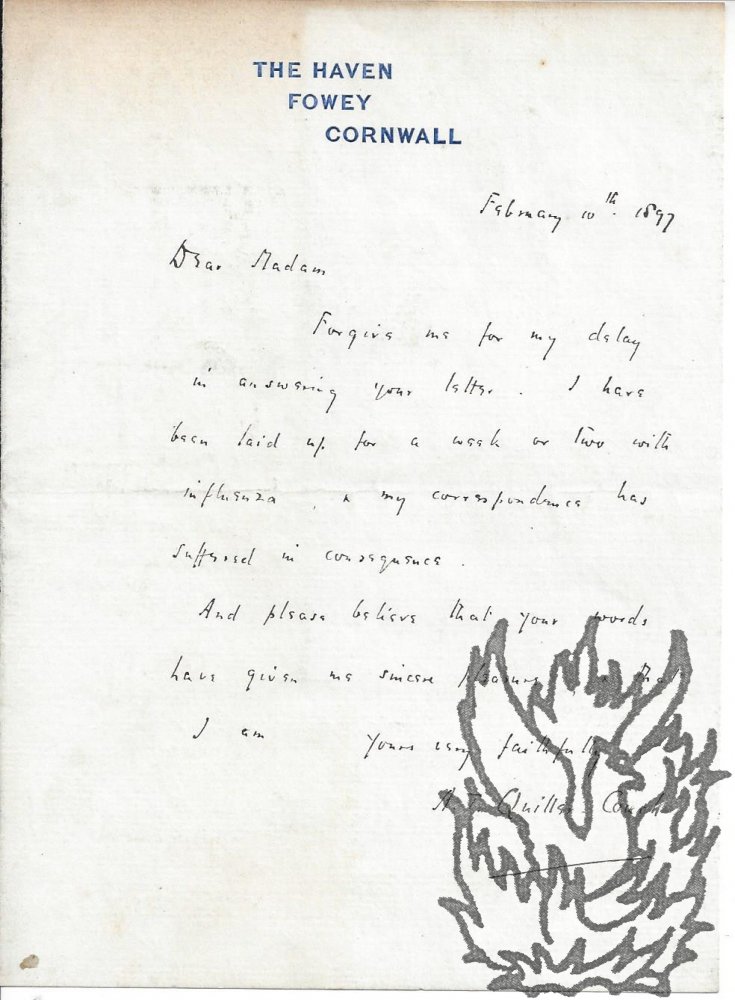 THE HAVEN
FOWEY
CORNWALL
February 10th. 1897
Dear Madam
Forgive me for my delay
in answering your letter. I have
been laid up for a week or two with
influenza, & my correspondence has
suffered in consequence.
And please believe that your words
have given me sincere pleasure
I am Yours very faithfully
A T Quiller Couch